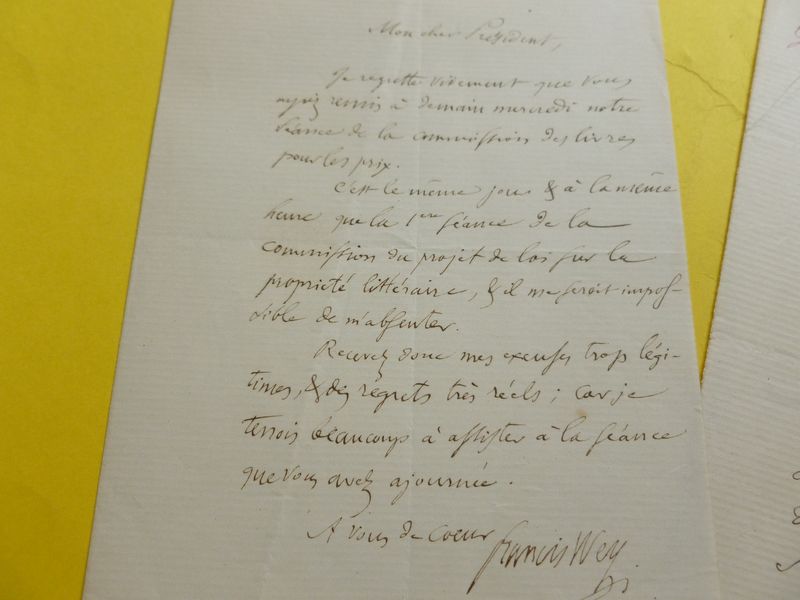 Mon cher Président,
Je regrette vivement que vous
ayiez remis à demain mercredi notre
séance de la commission des livres
pour les prix.
C'est le même jour & à la même
heure que la 1ere séance de la
commission du projet de loi sur la
propriété littéraire, & il me seroit impos-
sible de m'absenter.
Recevez donc mes excuses trop légi-
times, & des régrets très réels ; car je
tenois beaucoup à assister à la séance
que vous avez ajournée.
A vous de coeur
Francis Wey